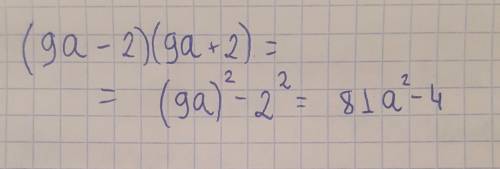 (9a - 2)(9a + 2) =
= (9a)² - 2² = 81a² - 4